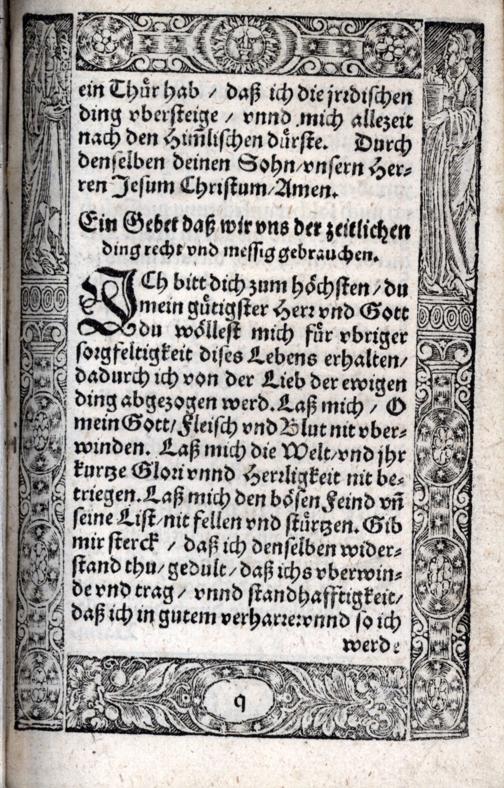 ein Thuͤr hab / daß ich die jrrdischen
ding vbersteige / vnnd mich allezeit
nach den Him̃lischen duͤrste. Durch
denselben deinen Sohn/vnsern Her-
ren Jesum Christum/Amen.
Ein Gebet daß wir vns der zeitlichen
ding recht vnd messig gebrauchen.
ICh bitt dich zum hoͤchsten / du
mein guͤtigster Herr vnd Gott
du woͤllest mich fuͤr vbriger
sorgfeltigkeit dises Lebens erhalten/
dadurch ich von der Lieb der ewigen
ding abgezogen werd. Laß mich / O
mein Gott/ Fleisch vnd Blut nit vber-
winden. Laß mich die Welt/vnd jhr
kurtze Glori vnnd Herrligkeit nit be-
triegen. Laß mich den boͤsen Feind vñ
seine List/nit fellen vnd stuͤrtzen. Gib
mir sterck / daß ich denselben wider-
stand thu/ gedult/ daß ichs vberwin-
de vnd trag / vnnd standhafftigkeit/
daß ich in gutem verharre:vnnd so ich
werde
q